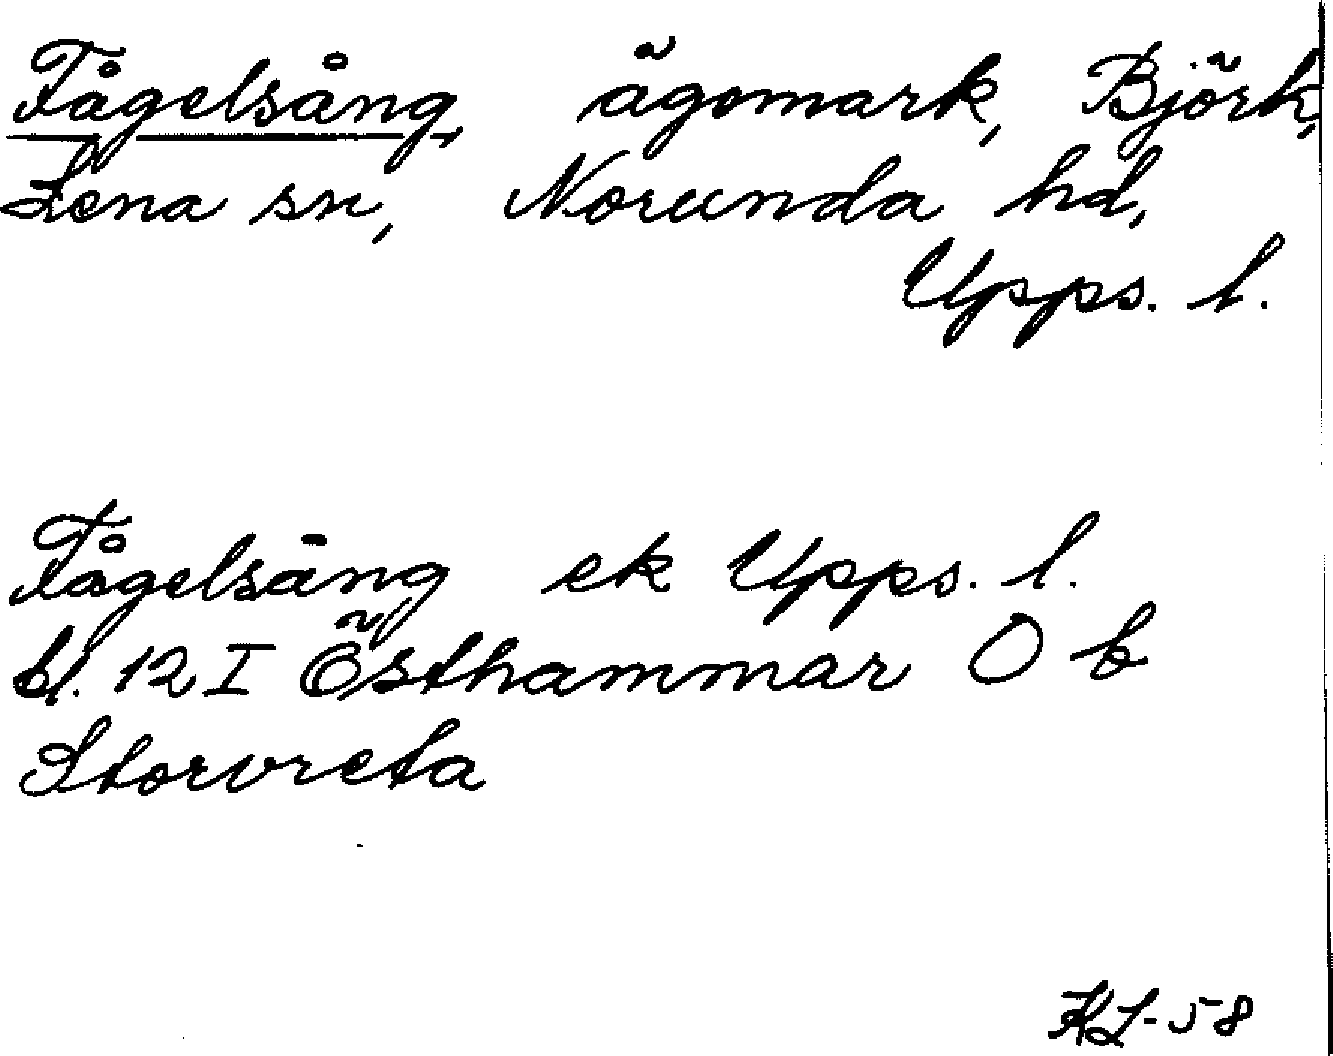 Fågelsång, ägomark, Björk,
Lena sn, Norunda hd,
Upps. l.
Fågelsång ek Upps. l.
bl. 12 I Östhammar O b
Storvreta
KL-58